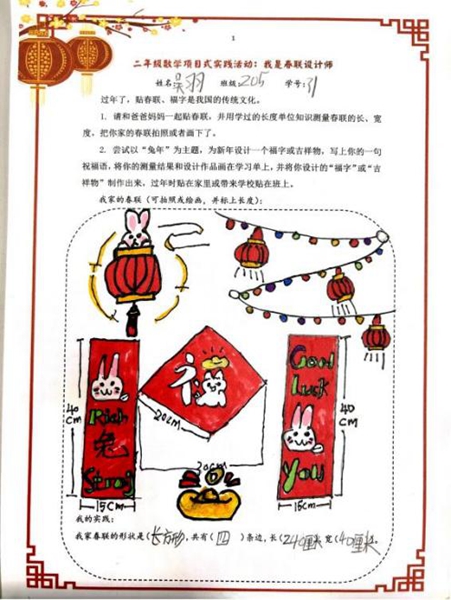 1
二年级数学项目式实践活动：我是春联设计师
姓名：吴羽 班级：205 学号：31
过年了，贴春联、福字是我国的传统文化。
1. 请和爸爸妈妈一起贴春联，并用学过的长度单位知识测量春联的长、宽度，把你家的春联拍照或者画下了。
2. 尝试以“兔年”为主题，为新年设计一个福字或吉祥物，写上你的一句祝福语，将你的测量结果和设计作品画在学习单上，并将你设计的“福字”或“吉祥物”制作出来，过年时贴在家里或带来学校贴在班上。
我家的春联（可拍照或绘画，并标上长度）：
40CM
Rich
兔
Spring
15CM
20CM
20CM
Good
luck
You
40CM
15CM
我的实践：
我家春联的形状是（长方形），共有（四）条边，长（40厘米）宽（40厘米）。